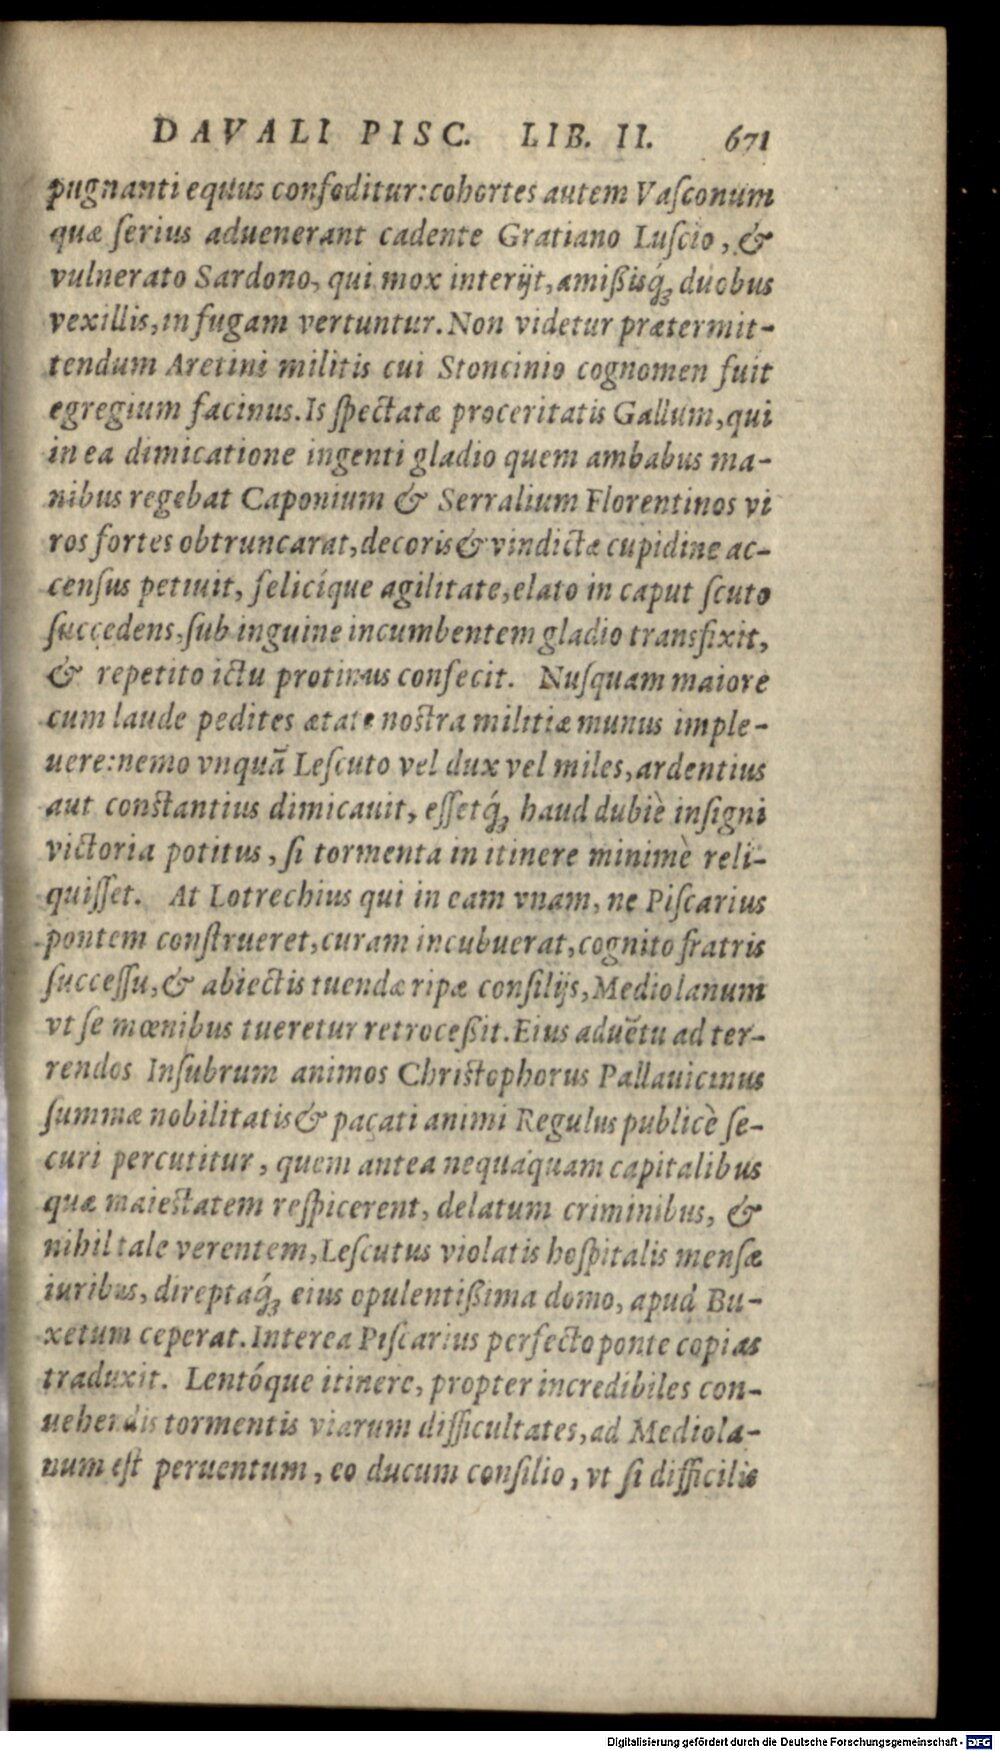 DAVALI PISC. LIB. II. 671
pugnanti equus confoditur: cohortes autem Vaſconum
quæ ſerius aduenerant cadente Gratiano Luſcio, &
vulnerato Sardono, qui mox interijt, amißisq́ꝫ duobus
vexillis, in fugam vertuntur. Non videtur prætermit-
tendum Aretini militis cui Stoncinio cognomen fuit
egregium facinus. Is ſpectatæ proceritatis Gallum, qui
in ea dimicatione ingenti gladio quem ambabus ma-
nibus regebat Caponium & Serralium Florentinos vi
ros fortes obtruncarat, decoris & vindictæ cupidine ac-
cenſus petiuit, felicíque agilitate, elato in caput ſcuto
ſuccedens, ſub inguine incumbentem gladio transfixit,
& repetito ictu protinus confecit. Nuſquam maiore
cum laude pedites ætate noſtra militiæ munus imple-
uere: nemo vnquā Leſcuto vel dux vel miles, ardentius
aut conſtantius dimicauit, eſſetq́ꝫ haud dubiè inſigni
victoria potitus, ſi tormenta in itinere minimè reli-
quiſſet. At Lotrechius qui in eam vnam, ne Piſcarius
pontem conſtrueret, curam incubuerat, cognito fratris
ſucceſſu, & abiectis tuendæ ripæ conſilijs, Mediolanum
vt ſe mœnibus tueretur retroceßit. Eius aduētu ad ter-
rendos Inſubrum animos Chriſtophorus Pallauicinus
ſummæ nobilitatis & pacati animi Regulus publicè ſe-
curi percutitur, quem antea nequaquam capitalibus
quæ maieſtatem reſpicerent, delatum criminibus, &
nihil tale verentem, Leſcutus violatis hoſpitalis menſæ
iuribus, direptaq́ꝫ eius opulentißima domo, apud Bu-
xetum ceperat. Interea Piſcarius perfecto ponte copias
traduxit. Lentóque itinere, propter incredibiles con-
uehendis tormentis viarum difficultates, ad Mediola-
num eſt peruentum, eo ducum conſilio, vt ſi difficilis
Digitalisierung gefördert durch die Deutsche Forschungsgemeinschaft - DFG